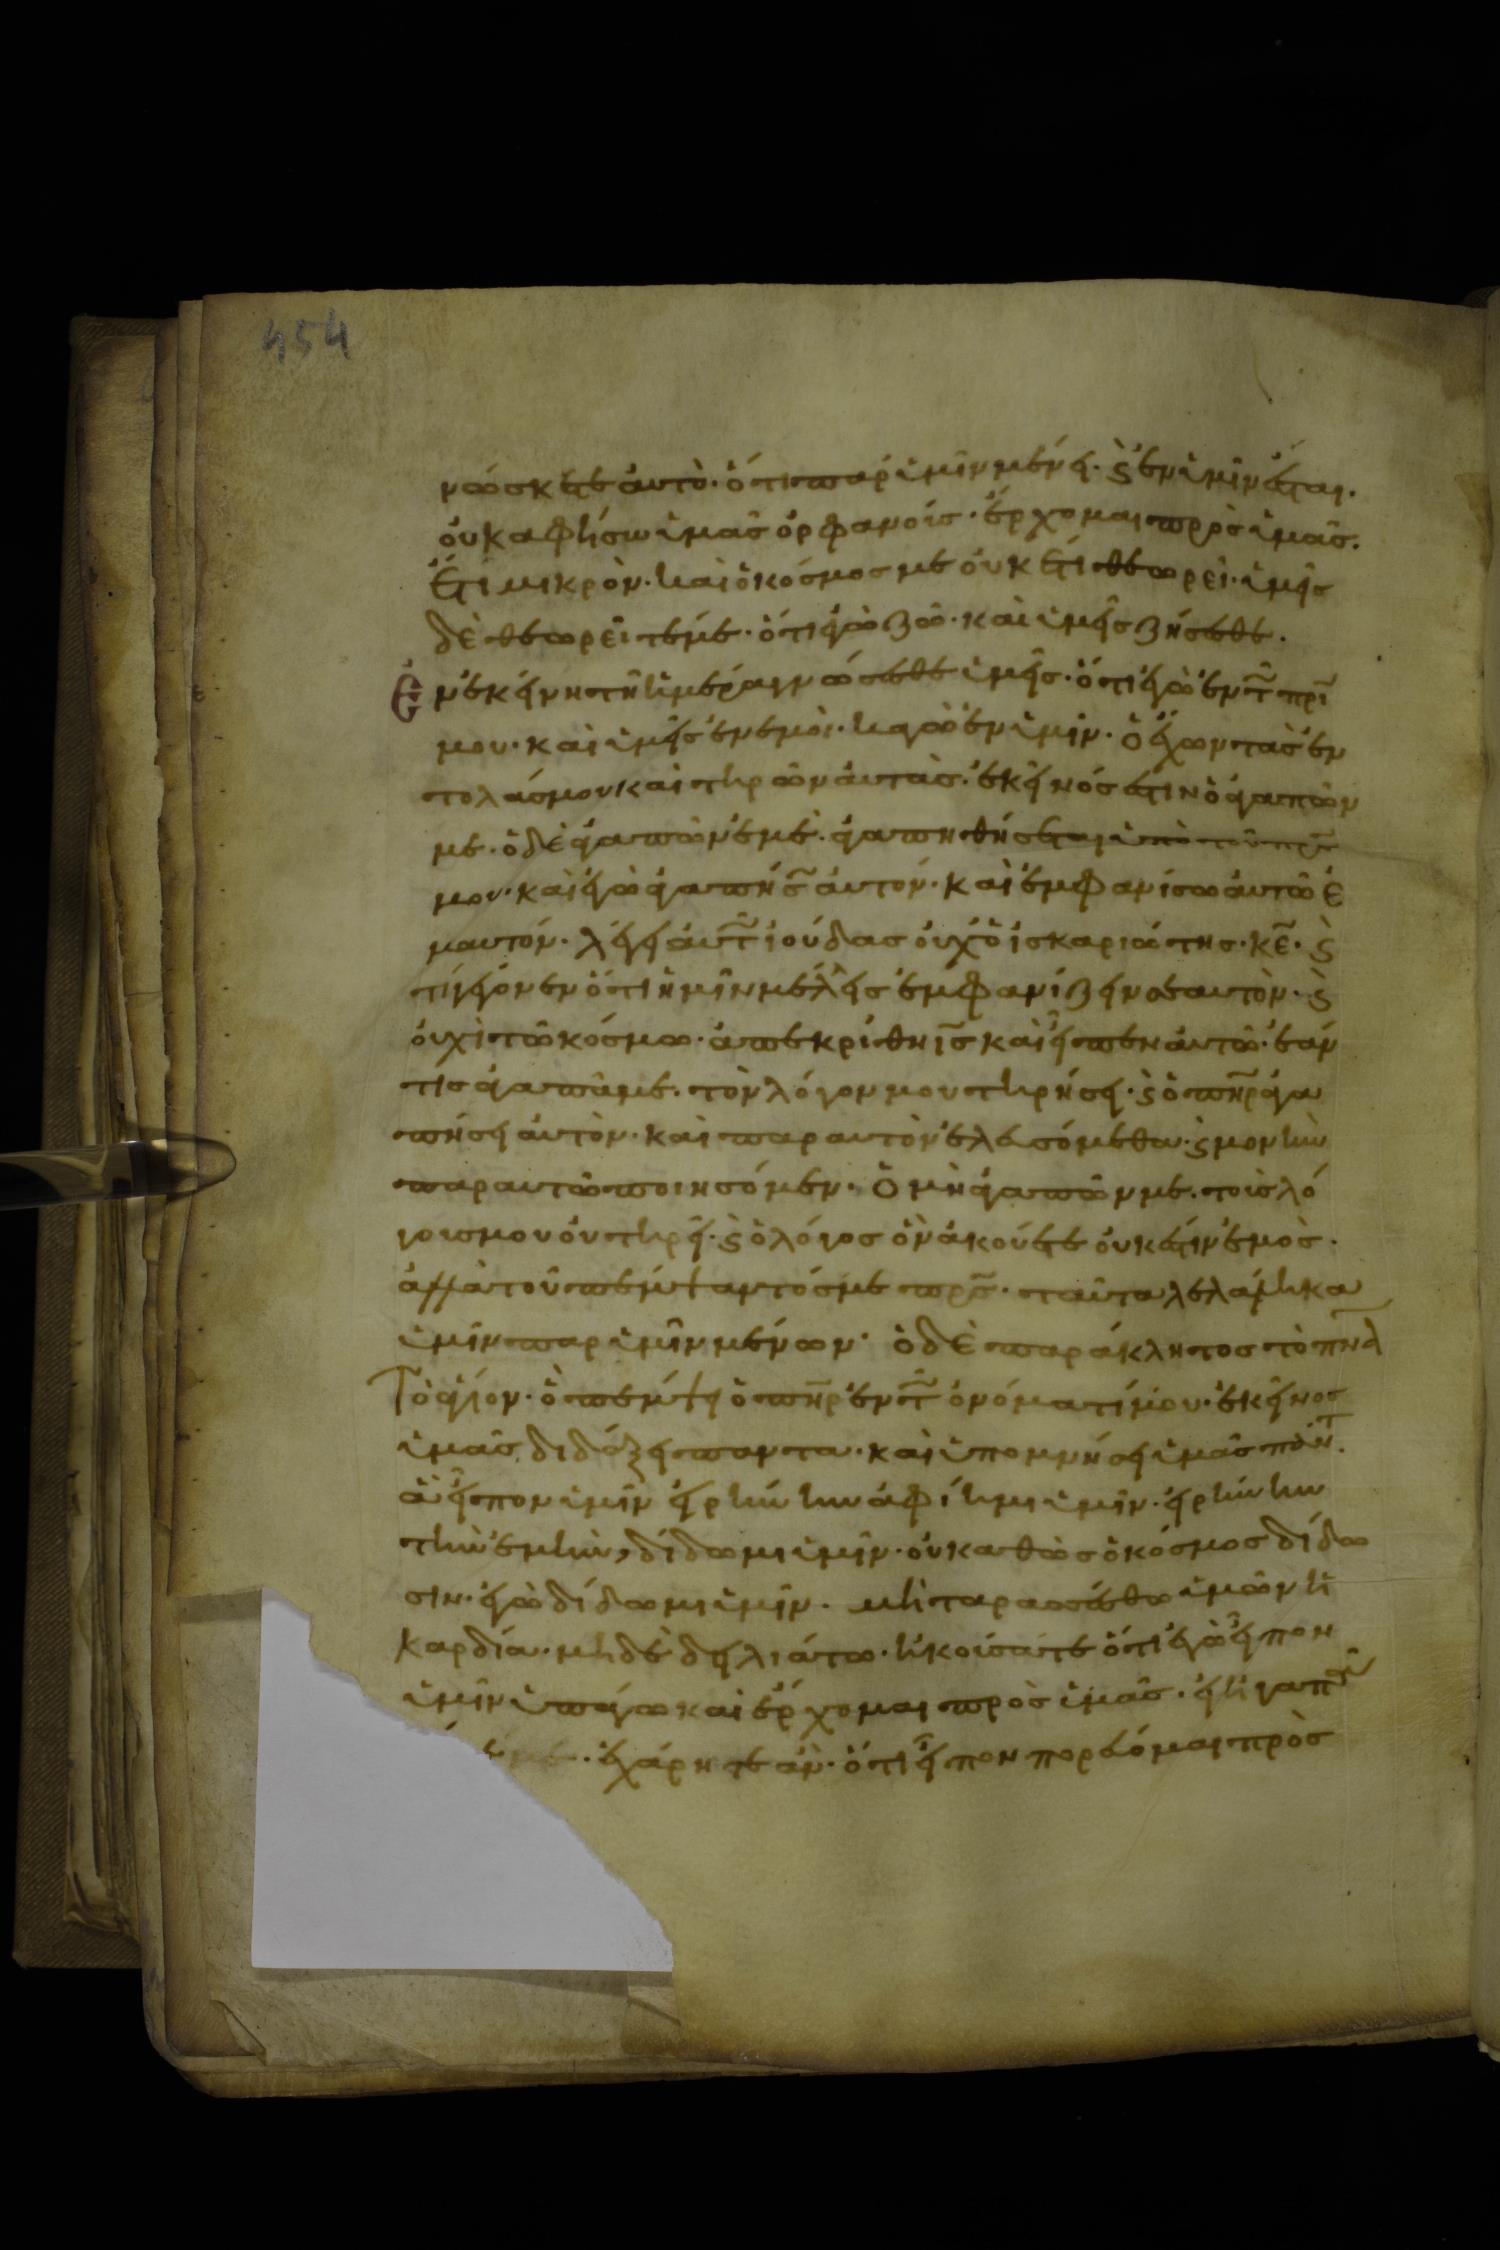 454
νώσκετε ἀυτὸ· ὅτι παρ ὑμῖν μένει· ϛ̀ ἐν ὑμῖν ἔσται·
ὀυκ αφήσω ὑμᾶς ὀρφανούς· ἔρχομαι πρὸς ὑμᾶς.
Ἔτι μικρὸν· καὶ ὁ κόσμος με ὀυκ ἔτι θεωρεῖ· ὑμεῖς
δὲ θεωρεῖτέ με· ὅτι ἐγὼ ζῶ· καὶ ὑμεῖς ζήσεσθε.
Ἐν ἐκείνη τῆ ἡμέρα γνώσεσθε ὑμεῖς· ὅτι ἐγὼ ἐν τ͂ πρῖ
μου· καὶ ὑμεῖς ἐν εμὸι· καγὼ ἐν ὑμῖν· Ὁ ἔχων τὰς ἐν
τολάς μου καὶ τηρῶν ἀυτὰς· ἐκεῖνός ἐστιν ὁ ἀγαπῶν
με· ὁ δὲ ἀγαπῶν ἐμὲ· ἀγαπηθήσεται ὑπὸ τοῦ πρ͂ς
μου· καὶ ἐγὼ ἀγαπήσ͂ ἀυτόν· καὶ ἐμφανίσω ἀυτῶ ἐ
μαυτόν· λέγει ἀυτ͂ ἰούδας ὀυχ ὁ ἰσκαριώτης· κε͂· ϛ̀
τί γέγονεν ὅτι ἡμῖν μέλλεις ἐμφανίζειν σεαυτὸν· ϛ̀
ὀυχὶ τῶ κόσμω· ἀπεκρίθη ις͂ καὶ εἶπεν ἀυτῶ· ἐάν
τις ἀγαπᾶ με· τὸν λόγον μου τηρήσει· ϛ̀ ὁ πῆρ ἀγα
πήσει ἀυτὸν· καὶ παρ αυτὸν ἐλευσόμεθα· ϛ̀ μονὴν
παρ αυτῶ ποιησόμεν· Ὁ μὴ ἀγαπῶν με· τοὺς λό
γους μου ὀυ τηρεῖ· ϛ̀ ὁ λόγος ὃν ἀκούετε ὀυκ ἔστιν ἐμὸς·
ἀλλὰ τοῦ πέμψαντός με πρ͂ς· ταῦτα λελάληκα
ὑμῖν παρ ὑμῖν μένων· ὁ δὲ παράκλητος τὸ πν͂α
Τὸ ἅγιον· ὃ πέμψει ὁ πῆρ ἐν τ͂ ὀνόματί μου· ἐκεῖνος
ὑμᾶς διδάξει παντα· καὶ ὑπομνήσει ὑμᾶς πάντ·
ἃ εἶπον ὑμῖν εἰρήνην ἀφίημι ὑμῖν· εἰρήνην
τὴν ἐμὴν, δίδωμι ὑμῖν· ὀυ καθὼς ὁ κόσμος δίδω
σιν· ἐγὼ δίδωμι ὑμῖν. μὴ ταρασσέσθω ὑμῶν ἡ
καρδία· μηδὲ δειλιάτω· ἠκούσατε ὅτι ἐγὼ εἶπον
ὑμῖν ὑπάγω καὶ ἔρχομαι πρὸς ὑμᾶς· εἰ ἠγαπᾶ
με· ἐχάρητε ἂν· ὅτι εἶπον πορεύομαι πρὸς